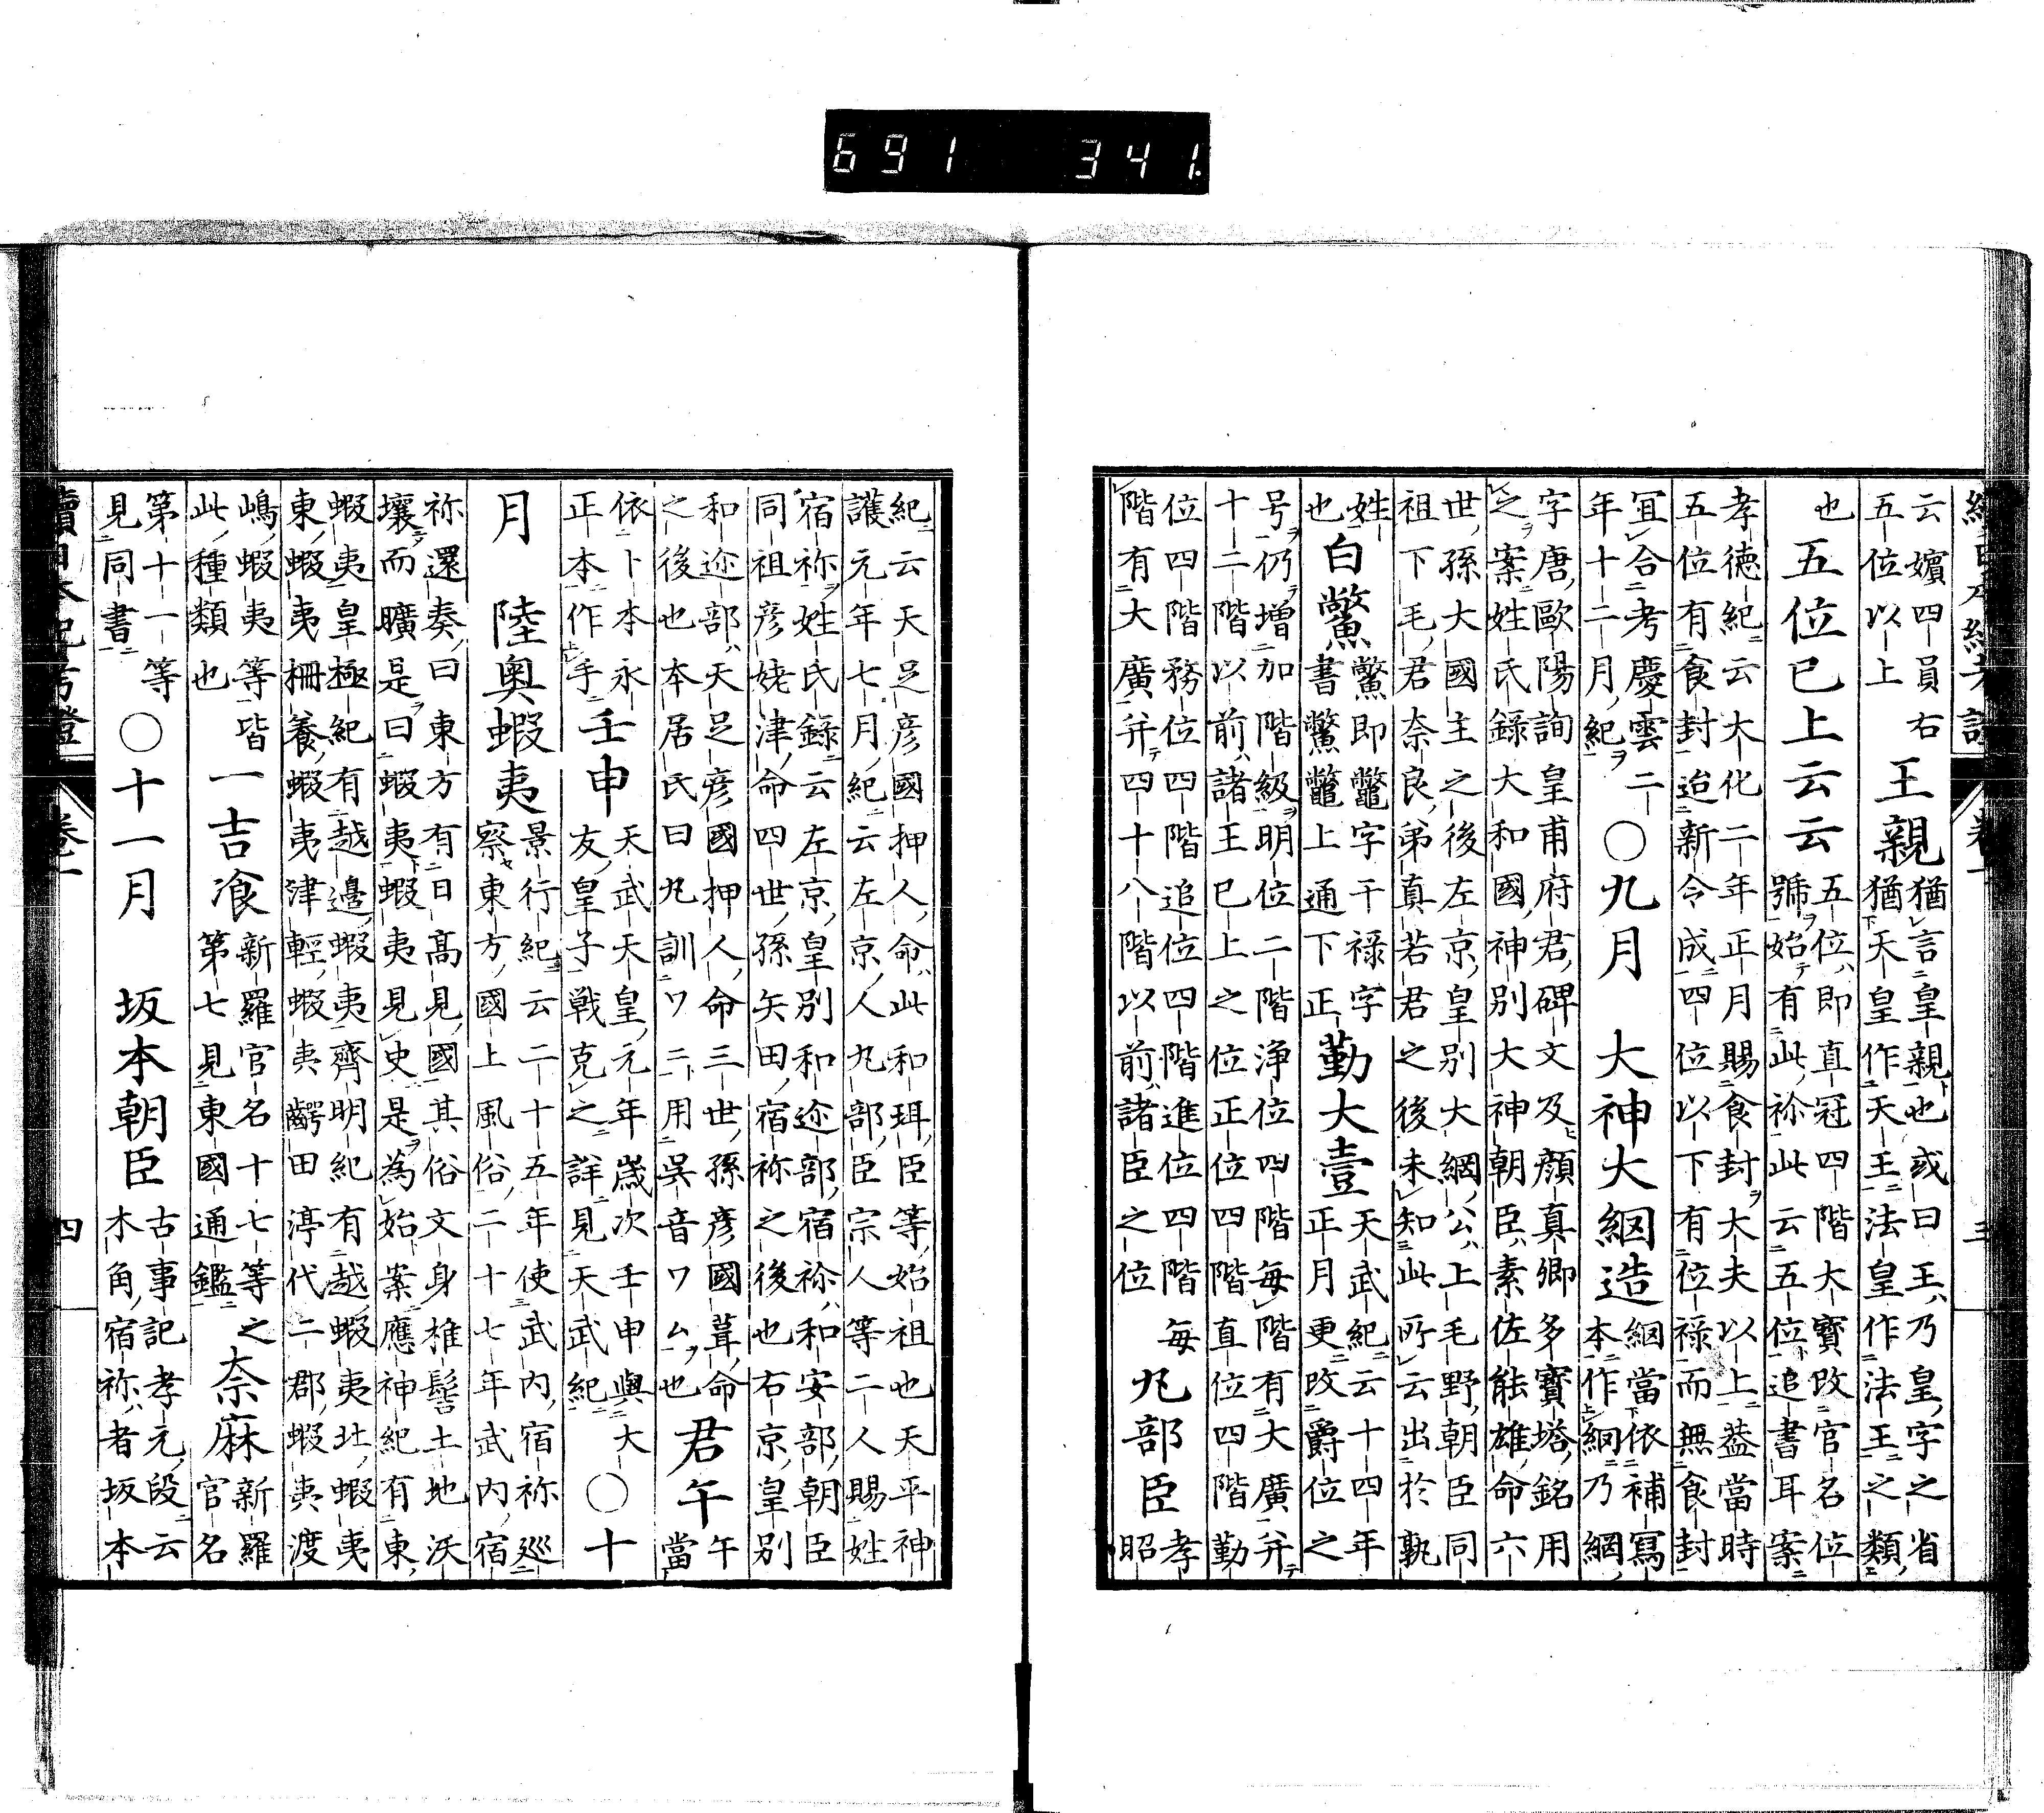 691 341.
云嬪四員右
五位以上
王親
猶言皇親也或曰王乃皇字之省
猶天皇作天王法皇作法王之類
也
五位已上云云
五位即直冠四階大寶改官名位
號始有此祢此云五位追書耳案
孝徳紀云大化二年正月賜食封大夫以上葢當時
五位有食封迨新令成四位以下有位禄而無食封
冝合考慶雲二
年十二月紀
○九月
大神大綱造
綱當依補寫
本作絅乃綱
字唐歐陽詢皇甫府君碑文及顔真卿多寶塔銘用
之案姓氏錄大和國神別大神朝臣素佐能雄命六
世孫大國主之後左京皇別大網公上毛野朝臣同
祖下毛君奈良弟真若君之後未知此所云出於孰
姓
也
白鱉
鱉即鼈字干禄字
書鱉鼈上通下正
勤大壹
天武紀云十四年
正月更改爵位之
号仍増加階級明位二階浄位四階毎階有大廣并
十二階以前諸王已上之位正位四階直位四階勤
位四階務位四階追位四階進位四階毎
階有大廣并四十八階以前諸臣之位
丸部臣
孝
昭
紀云天足彦國押人命此和珥臣等始祖也天平神
護元年七月紀云左京人丸部臣宗人等二人賜姓
宿祢姓氏錄云左京皇別和迩部宿祢和安部朝臣
同祖彦姥津命四世孫矢田宿祢之後也右京皇別
和迩部天足彦國押人命三世孫彦國葺命
之後也本居氏曰丸訓ワニ用呉音ワム也
君午
午
當
依卜本永
正本作手
壬申
天武天皇元年歳次壬申與大
友皇子戦克之詳見天武紀
○十
月
陸奥蝦夷
景行紀云二十五年使武内宿祢巡
察東方國上風俗二十七年武内宿
祢還奏曰東方有日高見國其俗文身椎髻土地沃
壤而曠是曰蝦夷蝦夷見史是為始案應神紀有東
蝦夷皇極紀有越邊蝦夷齊明紀有越蝦夷北蝦夷
東蝦夷柵養蝦夷津輕蝦夷齶田渟代二郡蝦夷渡
嶋蝦夷等皆
此種類也
一吉飡
新羅官名十七等之
第七見東國通鑑
奈麻
新羅
官名
第十一等
見同書
○十一月
坂本朝臣
古事記孝元段云
木角宿祢者坂本
續日本紀考證
卷一
四